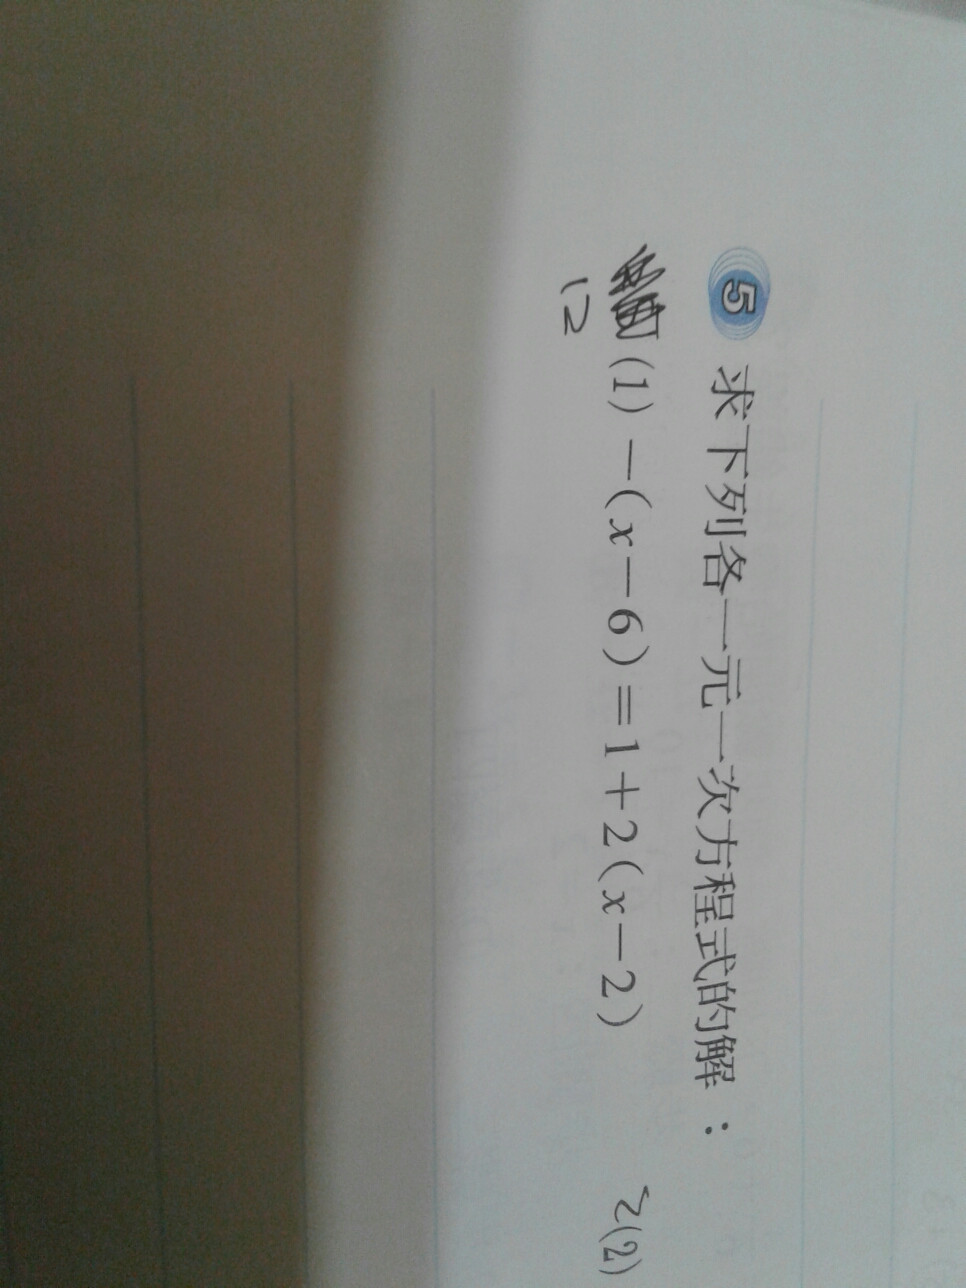 5 求下列各一元一次方程式的解：
(1) －(x－6)＝1＋2(x－2)
12
2(2)